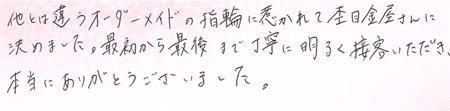 他とは違うオーダーメイドの指輪に惹かれて杢目金屋さんに
決めました。最初から最後まで丁寧に明るく接客いただき、
本当にありがとうございました。